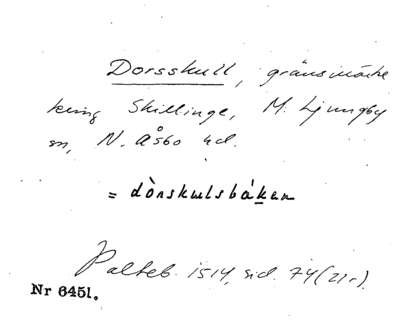 Dorsskull, gränsmärke
kring Skillinge, M. Ljungby
sn, N. Åsbo hd.
= dònskulsbákan
Palteb. 1514, sid. 74 (21 r).
Nr 6451.